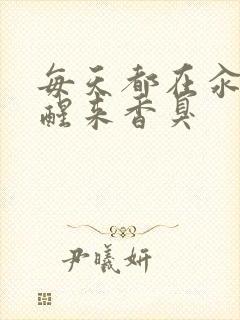 每天都在汆
醒来香臭
尹曦妍